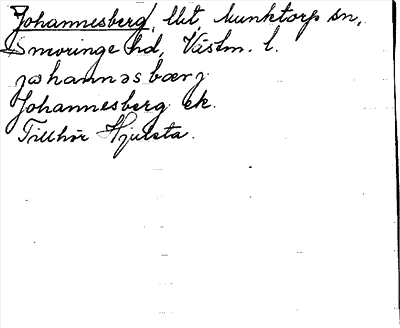 Johannesberg, lht, Munktorp sn,
Snevringe hd, Västm. l.
johannəsbærj
Johannesberg ek.
Tillhör Hjulsta.